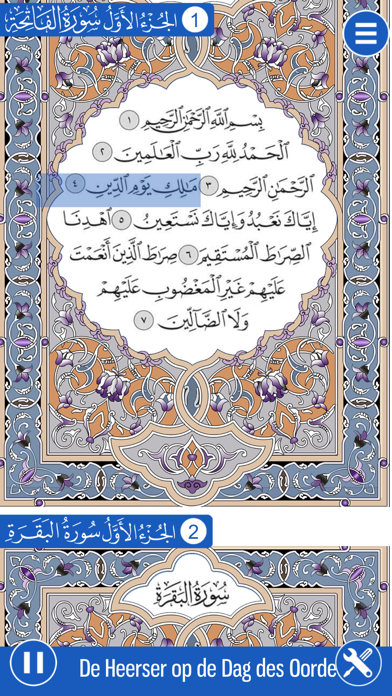 الجُزْءُ الأَوَّلُ سُورَةُ الفَاتِحَةِ 1
بِسْمِ اللَّهِ الرَّحْمَٰنِ الرَّحِيمِ ١
الْحَمْدُ لِلَّهِ رَبِّ الْعَالَمِينَ ٢
الرَّحْمَٰنِ الرَّحِيمِ ٣ مَالِكِ يَوْمِ الدِّينِ ٤
إِيَّاكَ نَعْبُدُ وَإِيَّاكَ نَسْتَعِينُ ٥ اهْدِنَا
الصِّرَاطَ الْمُسْتَقِيمَ ٦ صِرَاطَ الَّذِينَ أَنْعَمْتَ
عَلَيْهِمْ غَيْرِ الْمَغْضُوبِ عَلَيْهِمْ
وَلَا الضَّالِّينَ ٧
الجُزْءُ الأَوَّلُ سُورَةُ البَقَرَةِ 2
سُورَةُ البَقَرَةِ
De Heerser op de Dag des Oorde